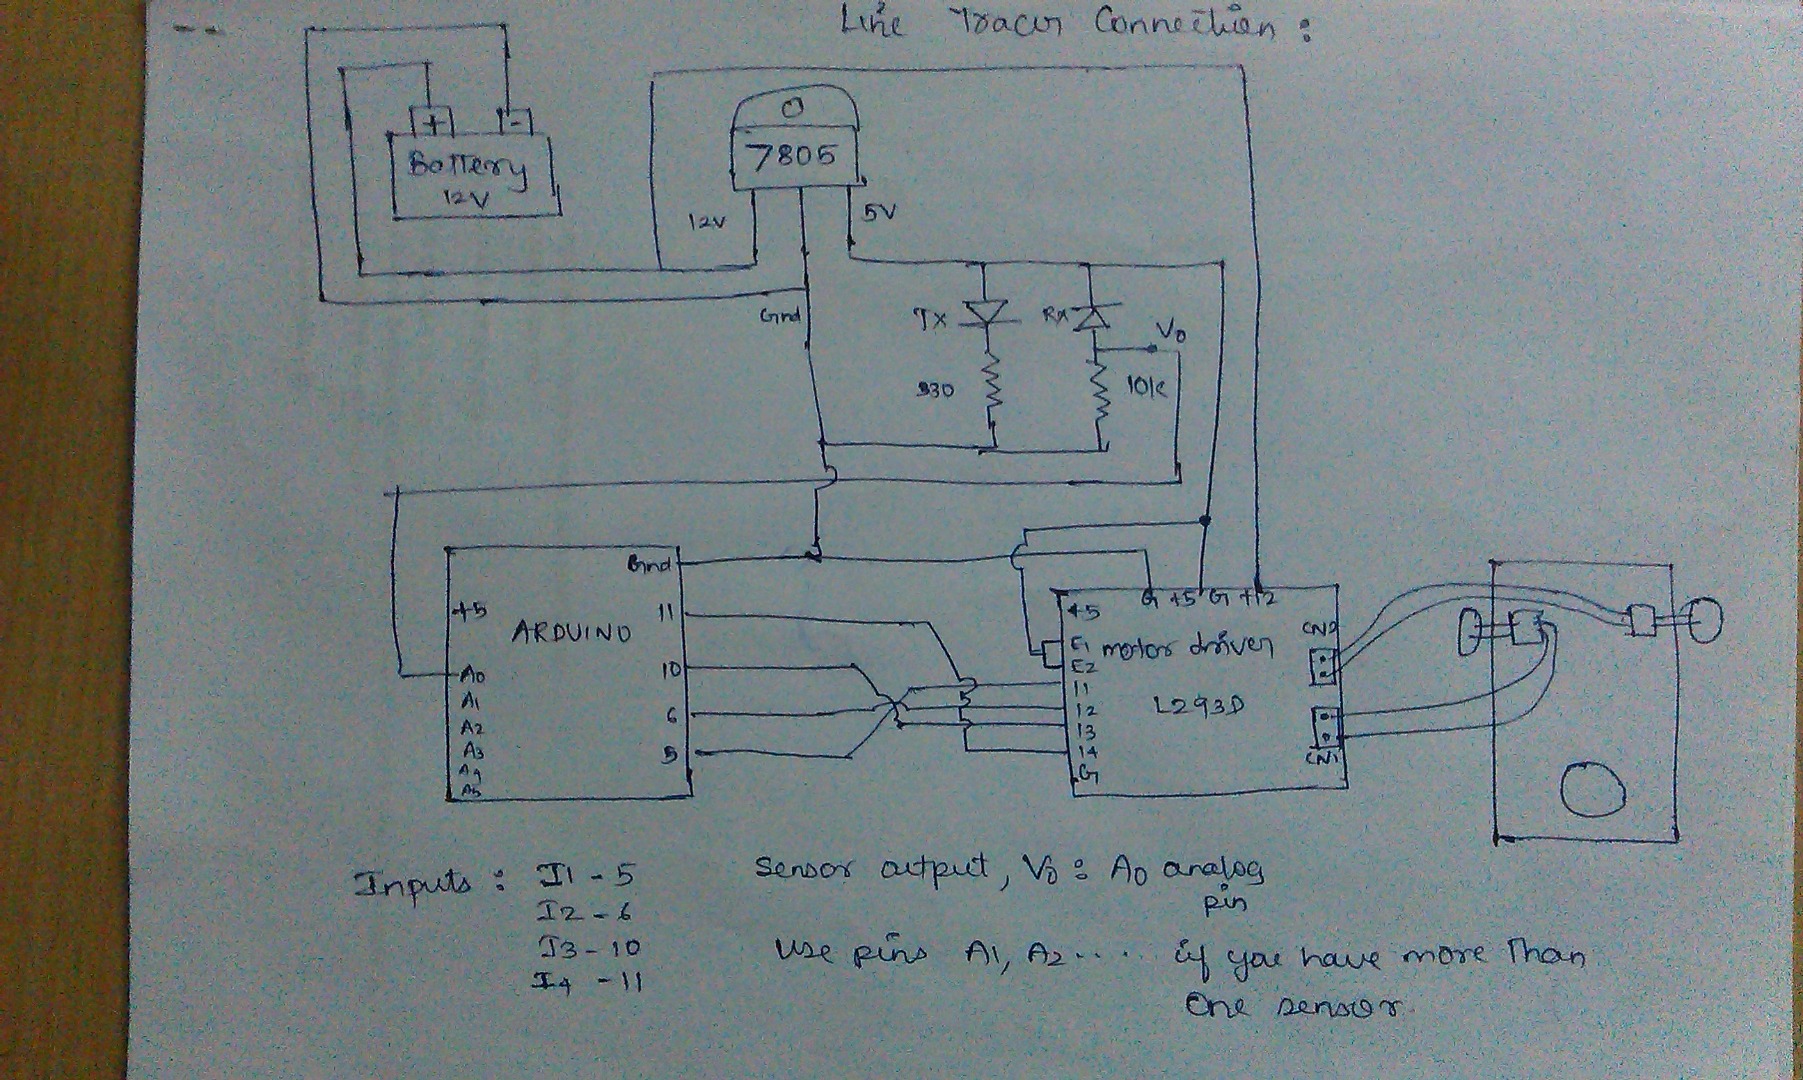 Line Tracer Connection :
+ -
Battery
12V
7805
12V
5V
Gnd
TX
RX
Vo
330
10k
ARDUINO
Gnd
+5
11
A0
10
A1
6
A2
A3
5
A4
A5
G +5 G +12
+5
E1
E2
motor driver
L293D
I1
I2
I3
I4
G
CN2
CN1
Inputs : I1 - 5
I2 - 6
I3 - 10
I4 - 11
Sensor output, Vo : A0 analog
pin
Use pins A1, A2 .... if you have more than
One sensor.